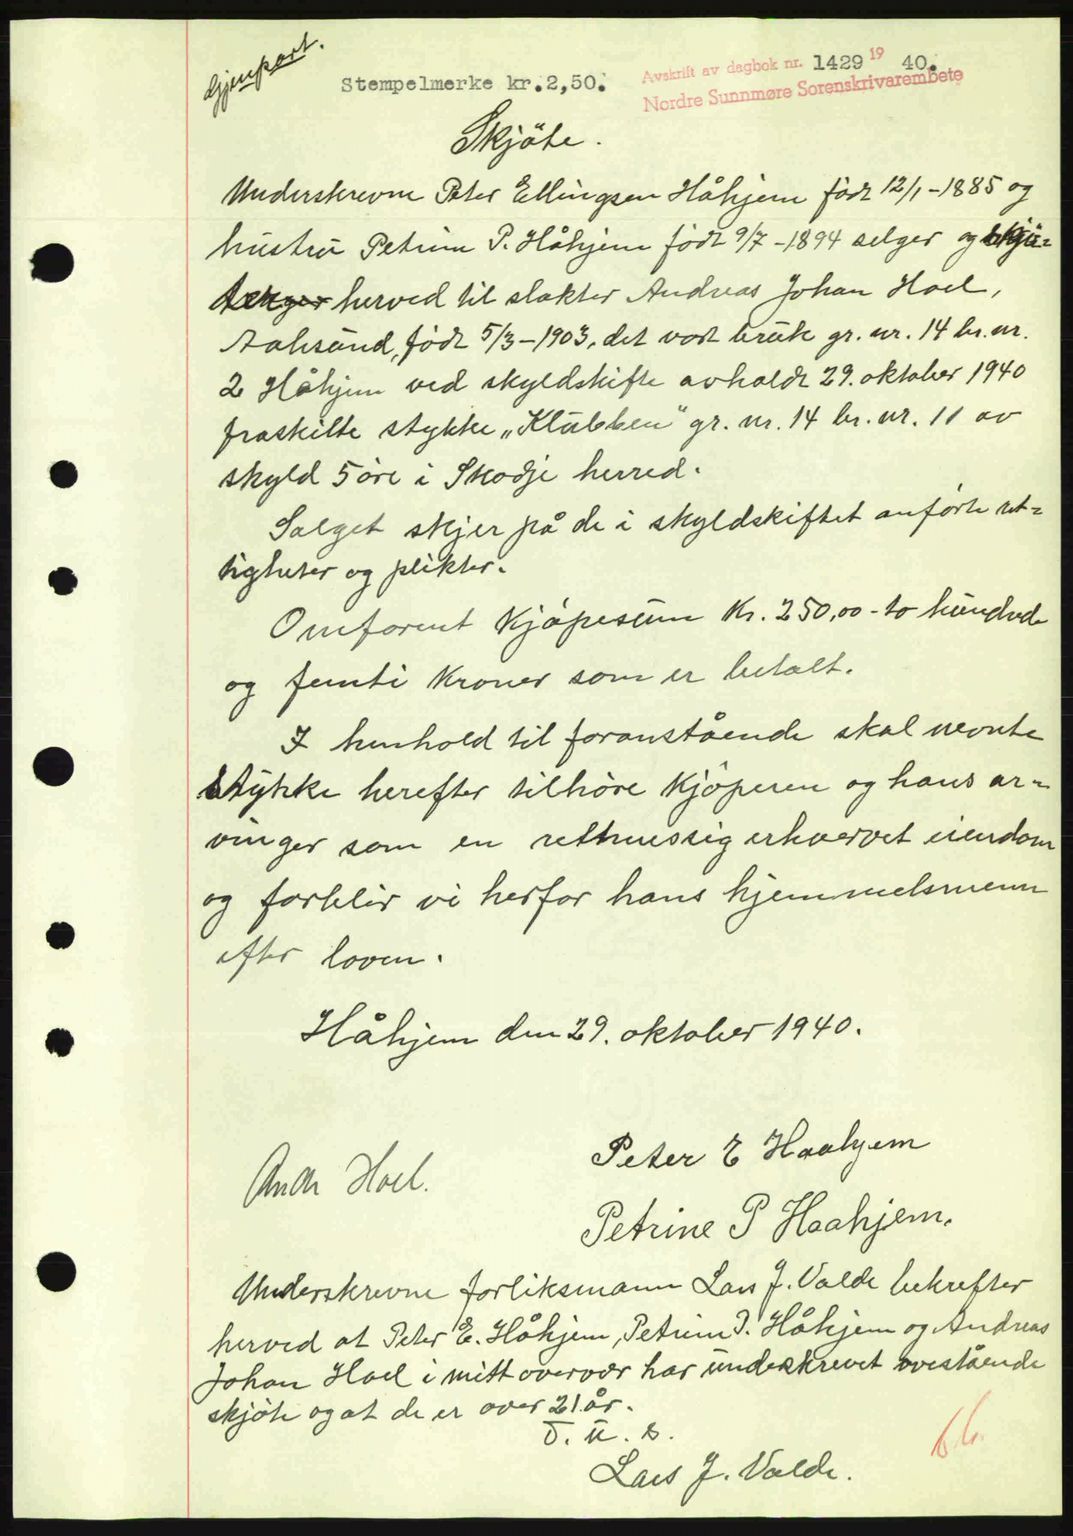 Gjenpart.
Stempelmerke kr. 2,50.
Avskrift av dagbok nr. 1429 19 40.
Nordre Sunnmøre Sorenskrivarembete
Skjöte.
Underskrevne Peter Ellingsen Håhjem född 12/1-1885 og
hustru Petrine P. Håhjem född 9/7-1894 selger og skjö=
herved til slakter Andreas Johan Hoel,
Aalesund, född 5/3-1903, det vort bruk gr. nr. 14 br. nr.
2 Håhjem ved skyldskifte avholdt 29. oktober 1940
fraskilte stykke „Klubben" gr. nr. 14 br. nr. 11 av
skyld 5 öre i Skodje herred.
Salget skjer på de i skyldskiftet anförte ret=
tigheter og plikter.
Omforent Kjöpesum Kr. 250,00 - to hundrede
og femti Kroner som er betalt.
I henhold til foranstående skal nevnte
Stykke herefter tilhöre Kjöperen og hans ar=
vinger som en rettmessig erhvervet eiendom
og forblir vi herfor hans hjemmelsmenn
efter loven.
Håhjem den 29. oktober 1940.
Peter E Haahjem
Andr Hoel.
Petrine P Haahjem.
Underskrevne forliksmann Lars J. Valde bekrefter
herved at Peter E. Håhjem, Petrine P. Håhjem og Andreas
Johan Hoel i mitt overvær har underskrevet ovestående
skjöte og at de er over 21 år.
D. u. s.
Lars J. Valde.